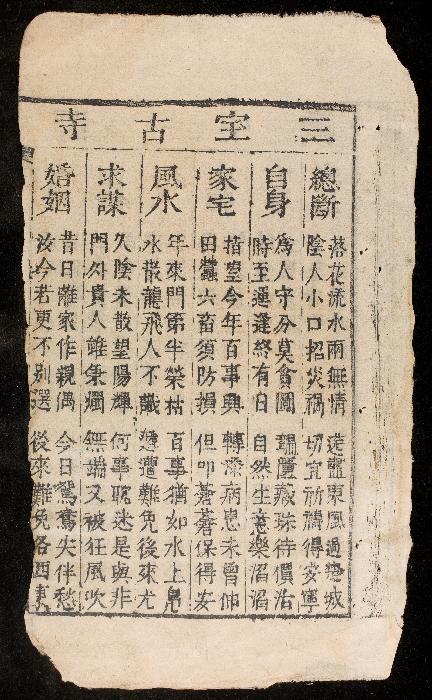 三宝古寺
總斷
落花流水兩無情 東風過城
陰人小口招災禍 切宜祈禱得安寧
自身
為人守分莫貪圖 匱藏珠待價沽
時至運逢終有日 自然生意樂滔滔
家宅
指望今年百事興 轉添病患未曾
田蠶六畜須防損 但叩蒼蒼保得安
風水
年來門第半榮枯 百事猶如水上鳧
水散龍飛人不識 邅難免後來尤
求謀
久陰未散望陽輝 何事耽迷是與非
門外貴人雖秉燭 無端又被狂風吹
婚姻
昔日離家作親偶 今日鴛鴦失伴愁
汝今若更不别選 後來難免各西東